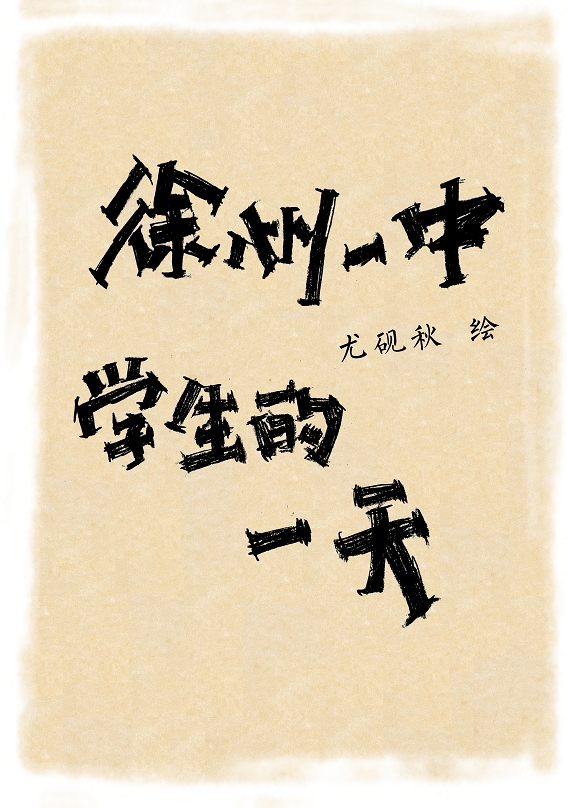 徐州一中
尤砚秋 绘
学生的
一天